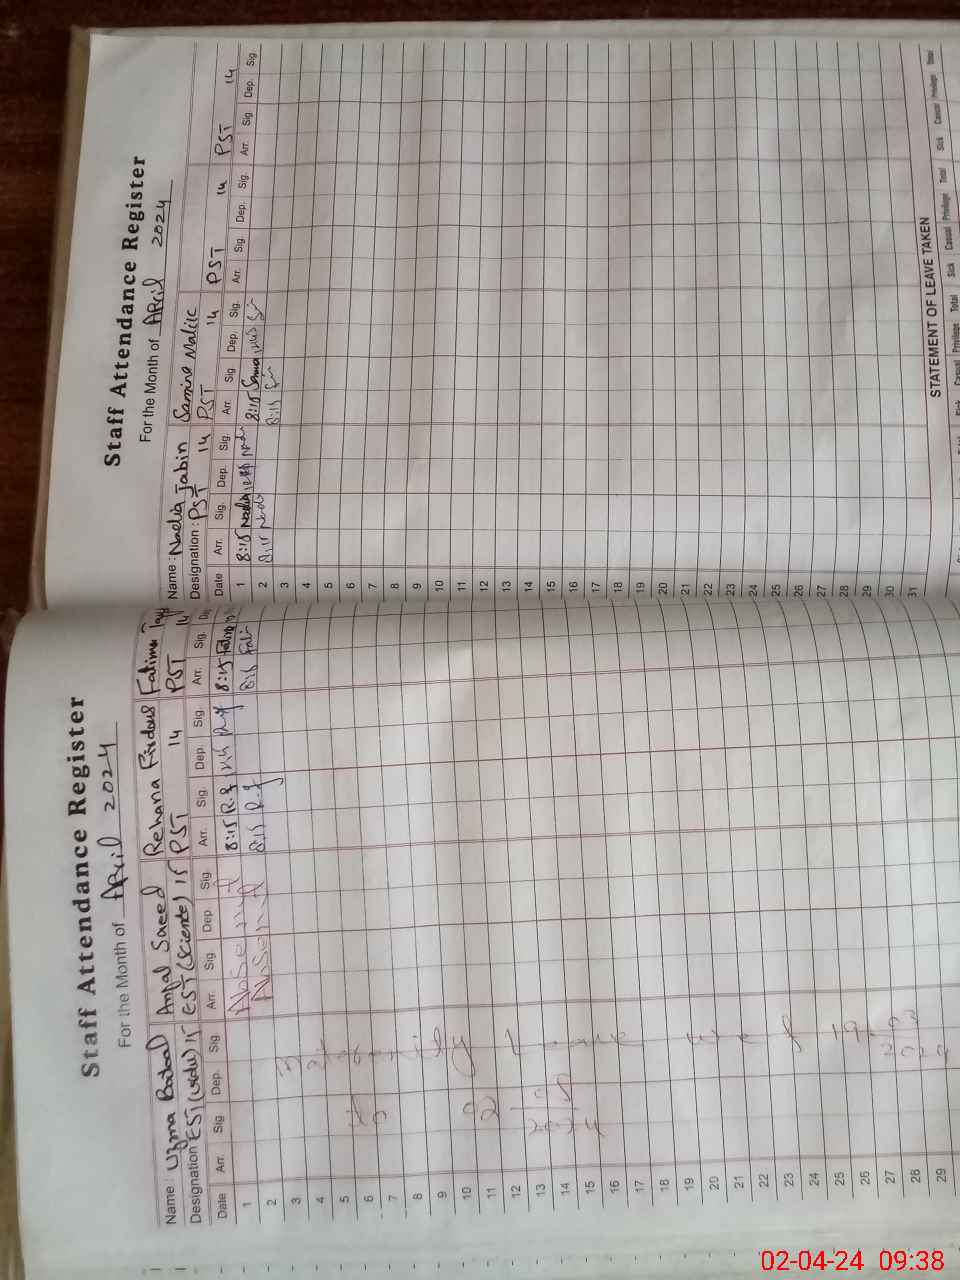 Staff Attendance Register
For the Month of April 2024
Name: Uzma Batool Anfal Saeed Rehana Firdous Fatima
Designation EST (urdu) 15 EST (Science) 15 PST 14 PST 14
Date Arr. Sig Dep. Sig. Arr. Sig Dep. Sig. Arr. Sig. Dep. Sig. Arr. Sig. De
1 Absent 8:15 R.f 8:15
2 Absent 8:15 R.f 8:15
3
4
5
6
7
8
9
10
11
12
13
14
15
16
17
18
19
20
21
22
23
24
25
26
27
28
29
Maternity Leave w e f
to
2024
Staff Attendance Register
For the Month of April 2024
Name: Nadia Jabin Samina Malik
Designation: PST 14 PST 14 PST 14 PST 14
Date Arr. Sig. Dep. Sig. Arr. Sig Dep. Sig. Arr. Sig. Dep. Sig. Arr. Sig Dep. Sig
1 8:15 Nadia 8:15
2 8:15 8:15
3
4
5
6
7
8
9
10
11
12
13
14
15
16
17
18
19
20
21
22
23
24
25
26
27
28
29
30
31
STATEMENT OF LEAVE TAKEN
Casual Privilege Total Sick Casual Privilege Total Sick Casual Privilege Total
02-04-24 09:38